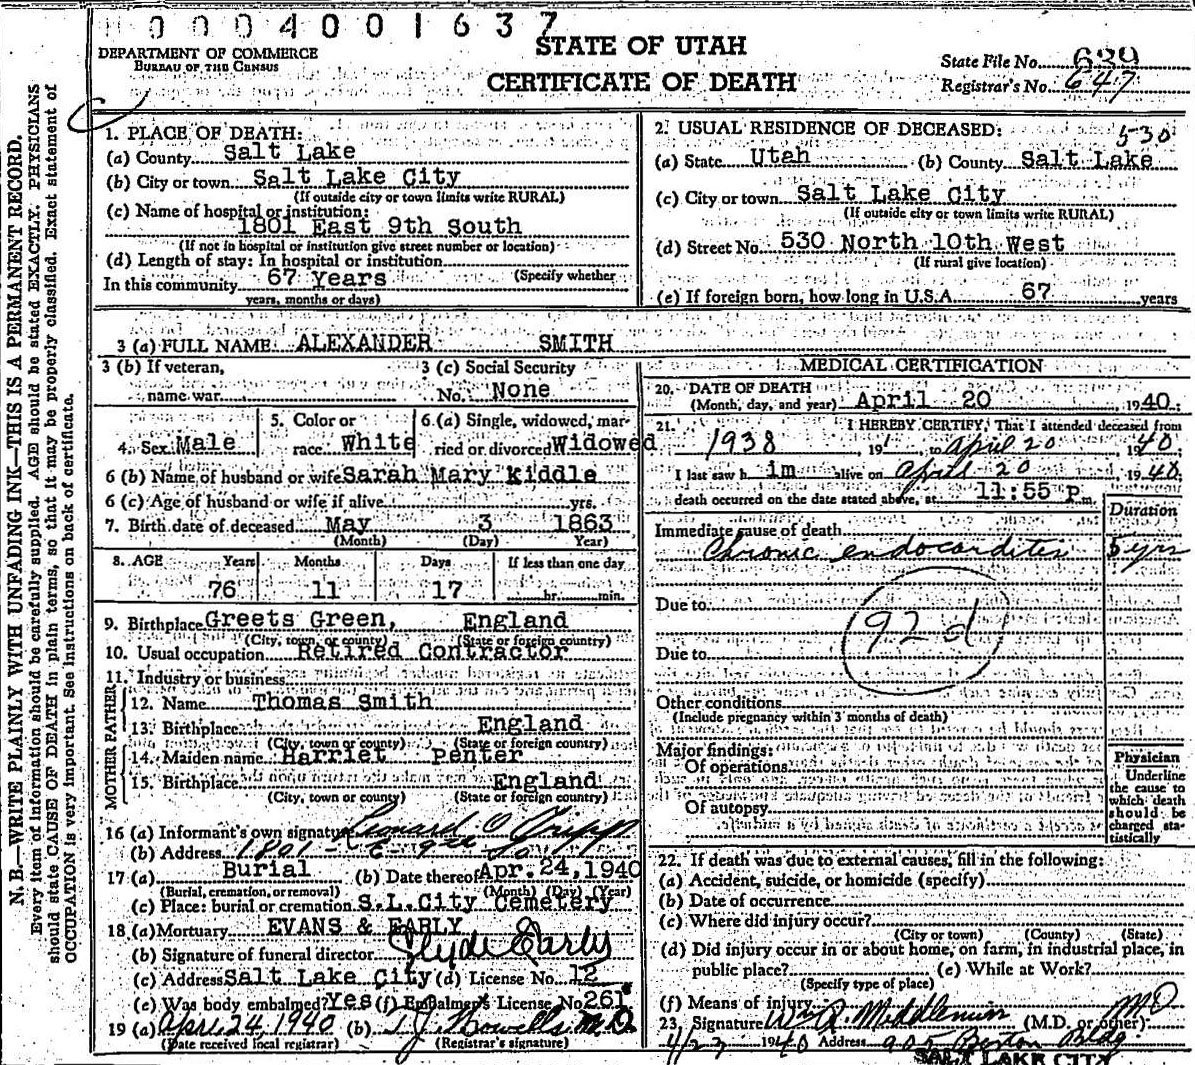 0004001637
DEPARTMENT OF COMMERCE
BUREAU OF THE CENSUS
STATE OF UTAH
CERTIFICATE OF DEATH
State File No. 689
Registrar's No. 647
N. B.—WRITE PLAINLY WITH UNFADING INK—THIS IS A PERMANENT RECORD.
Every item of information should be carefully supplied. AGE should be stated EXACTLY. PHYSICIANS
should state CAUSE OF DEATH in plain terms, so that it may be properly classified. Exact statement of
OCCUPATION is very important. See instructions on back of certificate.
1. PLACE OF DEATH:
(a) County Salt Lake
(b) City or town Salt Lake City
(If outside city or town limits write RURAL)
(c) Name of hospital or institution:
1801 East 9th South
(If not in hospital or institution give street number or location)
(d) Length of stay: In hospital or institution
(Specify whether
In this community 67 Years
years, months or days)
2. USUAL RESIDENCE OF DECEASED: 530
(a) State Utah (b) County Salt Lake
(c) City or town Salt Lake City
(If outside city or town limits write RURAL)
(d) Street No. 530 North 10th West
(If rural give location)
(e) If foreign born, how long in U.S.A. 67 years
3 (a) FULL NAME ALEXANDER SMITH
3 (b) If veteran,
name war
3 (c) Social Security
No. None
4. Sex Male
5. Color or
race White
6. (a) Single, widowed, mar-
ried or divorced Widowed
6 (b) Name of husband or wife Sarah Mary Kiddle
6 (c) Age of husband or wife if alive yrs.
7. Birth date of deceased May 3 1863
(Month) (Day) Year)
8. AGE Years Months Days If less than one day
76 11 17 hr. min.
9. Birthplace Greets Green, England
(City, town, or county) (State or foreign country)
10. Usual occupation Retired Contractor
11. Industry or business
FATHER
12. Name Thomas Smith
13. Birthplace England
(City, town or county) (State or foreign country)
MOTHER
14. Maiden name Harriet Penter
15. Birthplace England
(City, town or county) (State or foreign country)
16 (a) Informant's own signature Leonard O Tripp
(b) Address 1801 - E - 9th So
17 (a) Burial (b) Date thereof Apr. 24, 1940
(Burial, cremation, or removal) (Month) (Day) (Year)
(c) Place: burial or cremation S.L.City Cemetery
18 (a) Mortuary EVANS & EARLY
(b) Signature of funeral director Clyde Early
(c) Address Salt Lake City (d) License No. 12
(e) Was body embalmed? Yes (f) Embalmer's License No. 261
19 (a) Apr. 24, 1940 (b) T. J. Howells M.D.
(Date received local registrar) (Registrar's signature)
MEDICAL CERTIFICATION
20. DATE OF DEATH
(Month, day, and year) April 20 1940
21. I HEREBY CERTIFY, That I attended deceased from
1938 19 , to April 20 1940
I last saw h im alive on April 20 1940
death occurred on the date stated above, at 11:55 P.m.
Duration
Immediate cause of death
Chronic endocarditis 5 yrs
Due to
92d
Due to
Other conditions
(Include pregnancy within 3 months of death)
Major findings:
Of operations
Of autopsy
Physician
Underline
the cause to
which death
should be
charged sta-
tistically
22. If death was due to external causes, fill in the following:
(a) Accident, suicide, or homicide (specify)
(b) Date of occurrence
(c) Where did injury occur?
(City or town) (County) (State)
(d) Did injury occur in or about home, on farm, in industrial place, in
public place? (e) While at Work?
(Specify type of place)
(f) Means of injury
23. Signature Wm R. Middlemiss MD (M.D. or other)
4/23 1940 Address 905 Boston Bldg.
SALT LAKE CITY